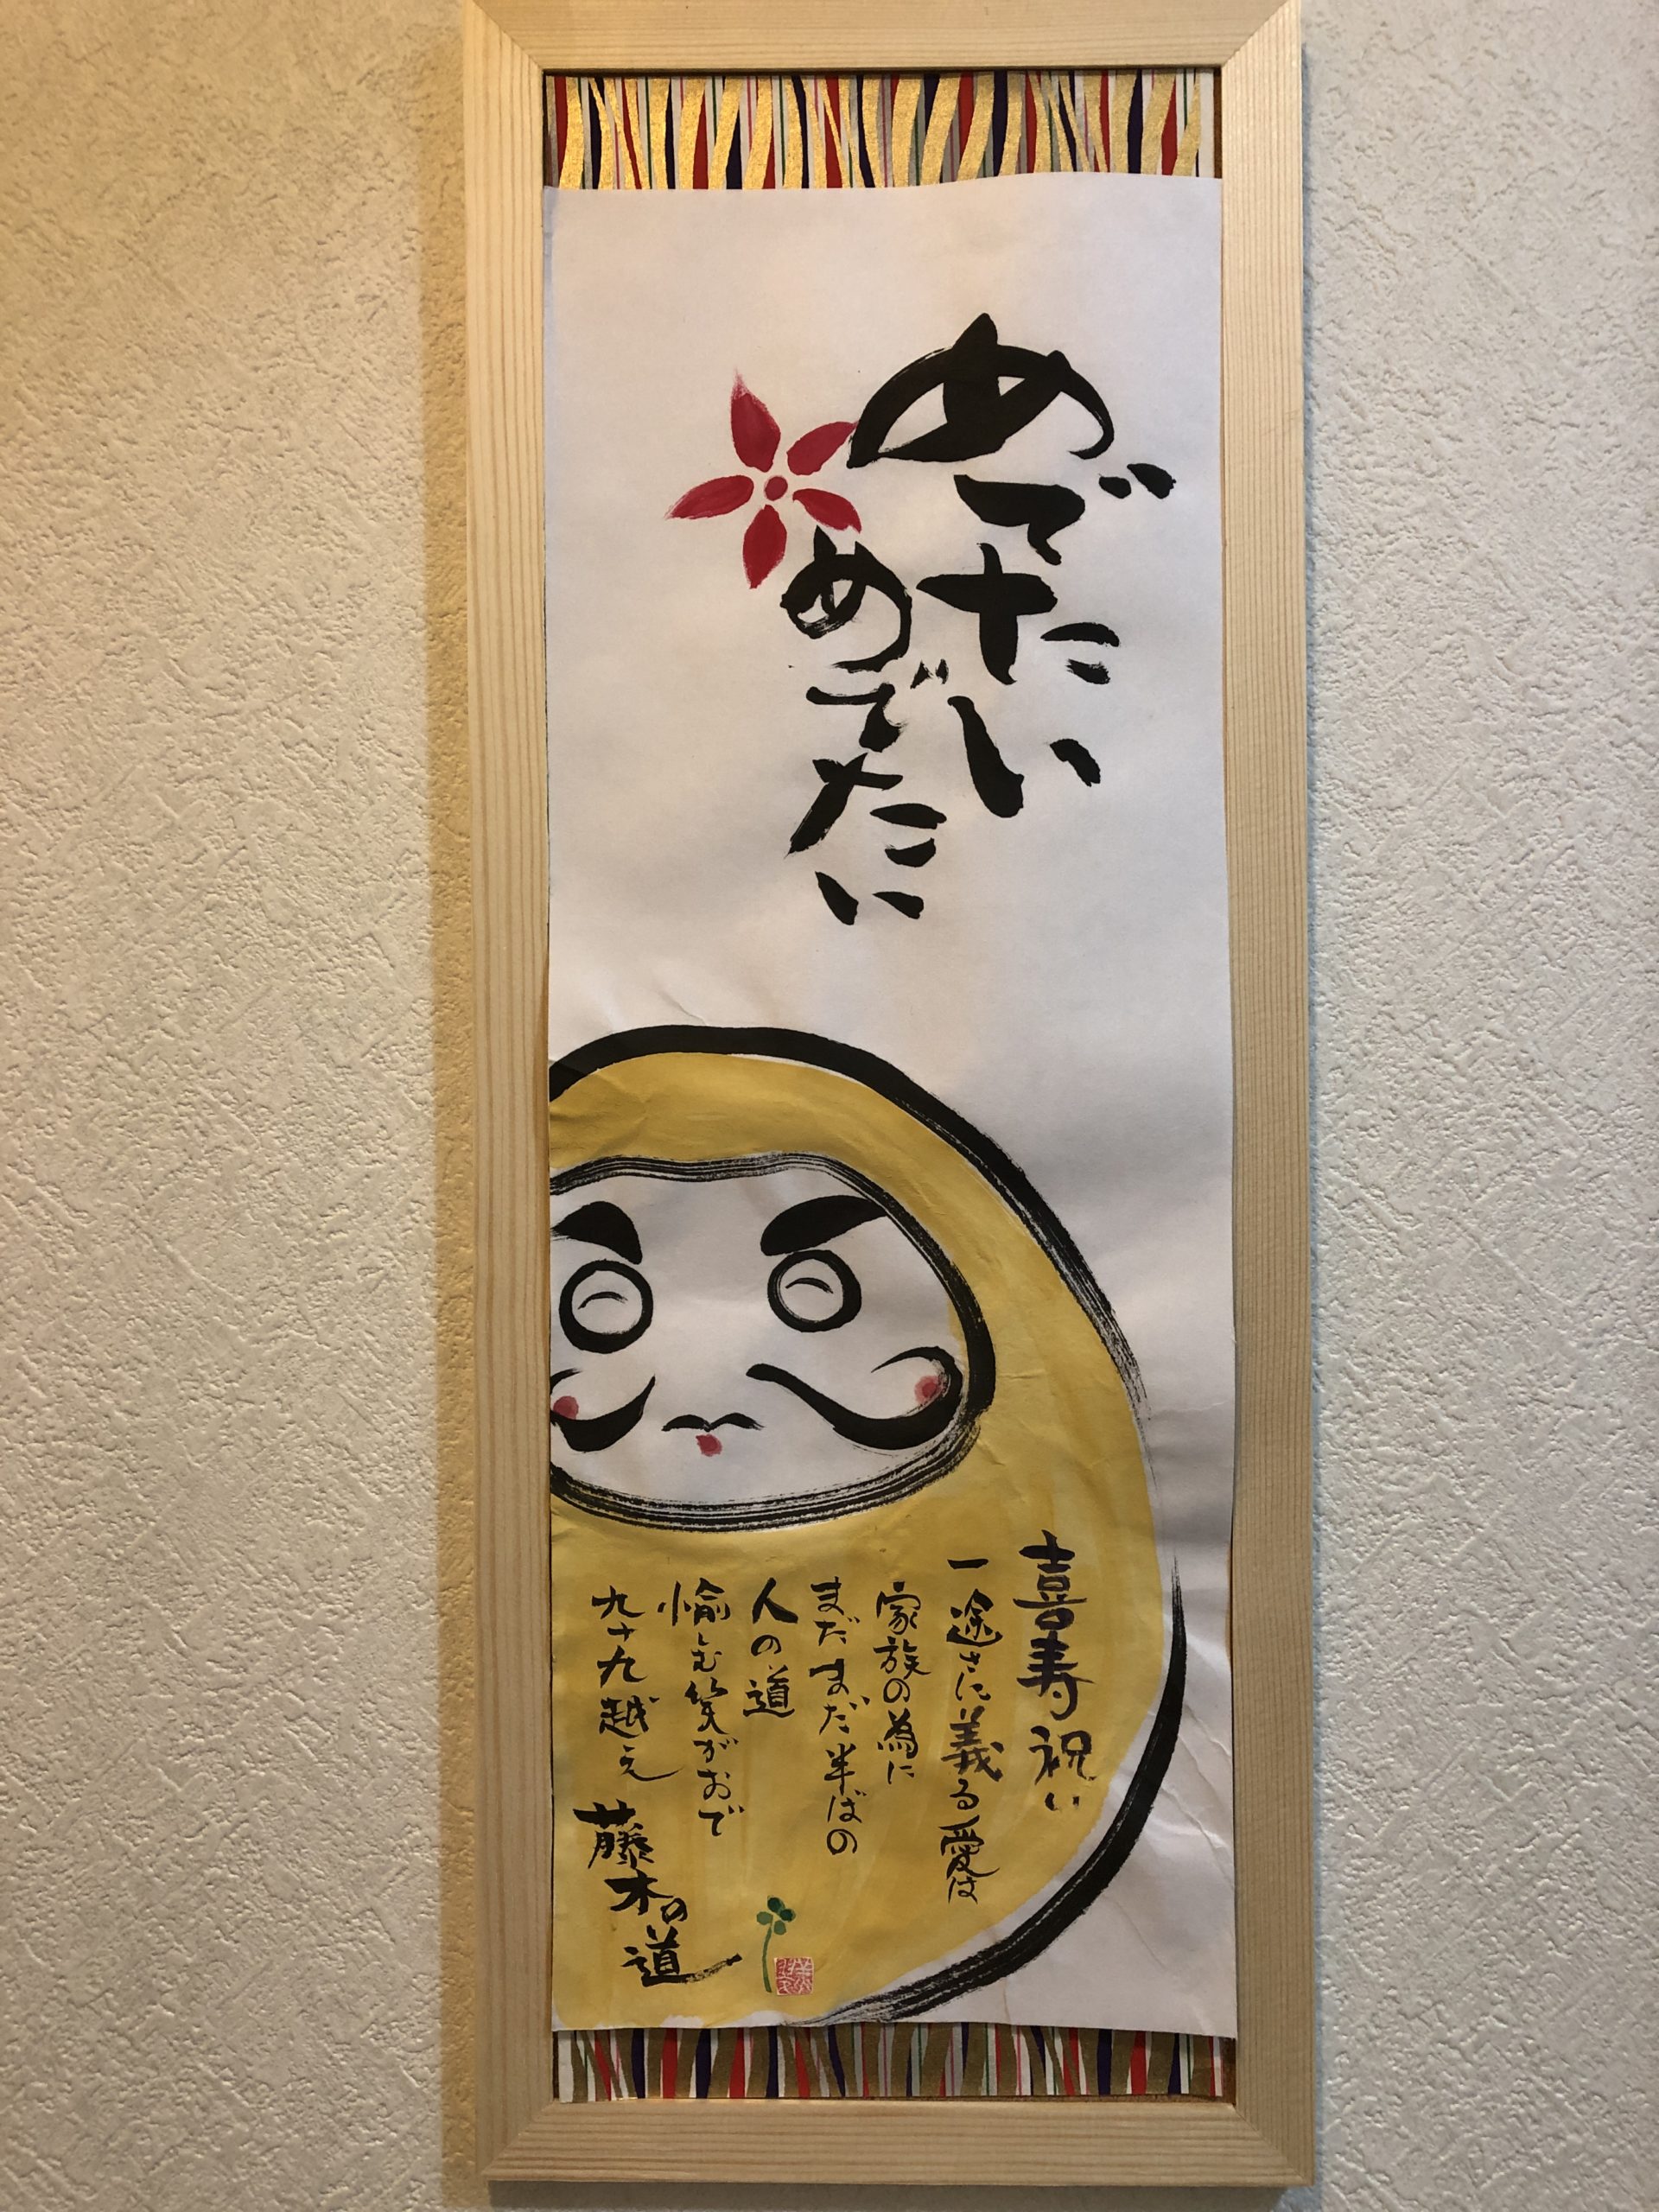 めでたい
めでたい
喜寿祝い
一途さに義る愛は
家族の為に
まだまだ半ばの
人の道
愉しむ笑がおで
九十九越え
藤木の道